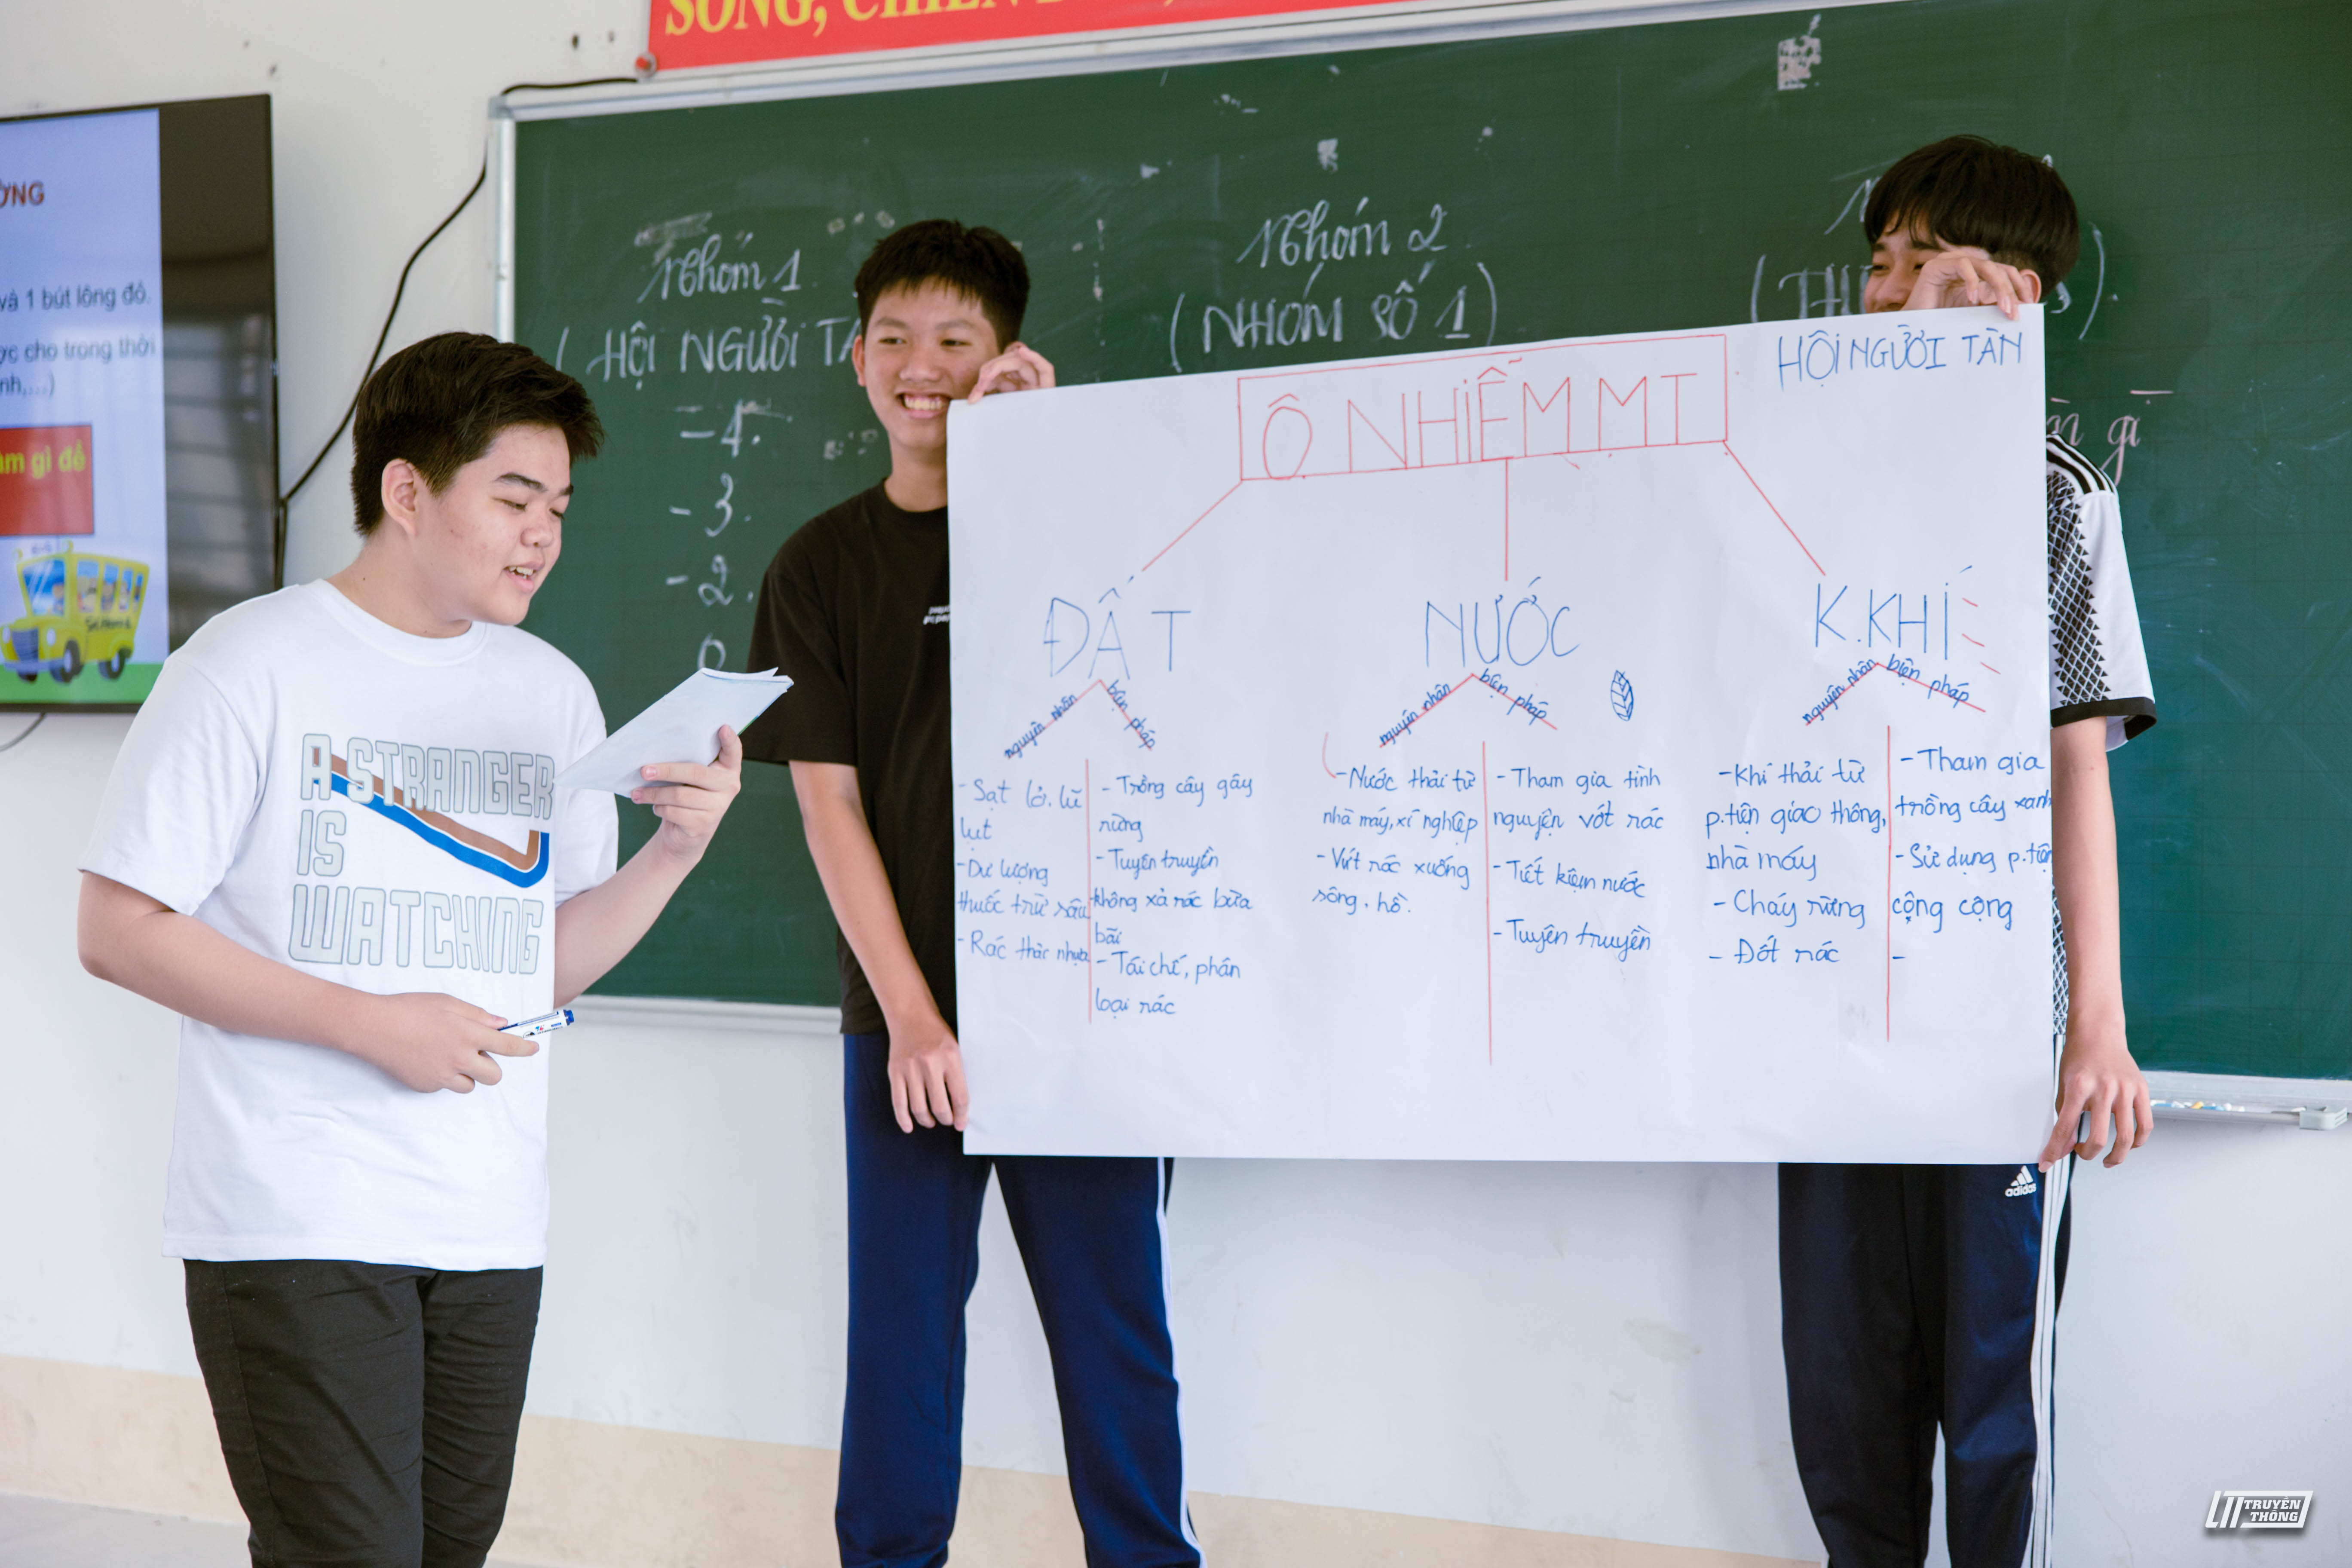 SỐNG, CHIẾN
ỜNG
và 1 bút lông đỏ.
ợc cho trong thời
nh,...)
àm gì để
Nhóm 1.
(HỘI NGƯỜI TÀ
- 4.
- 3.
- 2.
Nhóm 2
(NHÓM SỐ 1)
gì
HỘI NGƯỜI TÀN
Ô NHIỄM MT
ĐẤT
nguyên nhân
biện pháp
- Sạt lở. lũ
lụt
- Dư lượng
thuốc trừ sâu
- Rác thải nhựa
- Trồng cây gây
rừng
- Tuyên truyền
không xả rác bừa
bãi
- Tái chế, phân
loại rác
NƯỚC
nguyên nhân
biện pháp
- Nước thải từ
nhà máy, xí nghiệp
- Vứt rác xuống
sông. hồ.
- Tham gia tình
nguyện vớt rác
- Tiết kiệm nước
- Tuyên truyền
K.KHÍ
nguyên nhân
biện pháp
- Khí thải từ
p.tiện giao thông,
nhà máy
- Cháy rừng
- Đốt rác
- Tham gia
trồng cây xanh
- Sử dụng p.tiện
cộng cộng
-
A STRANGER
IS
WATCHING
adidas
LTT TRUYỀN
THÔNG